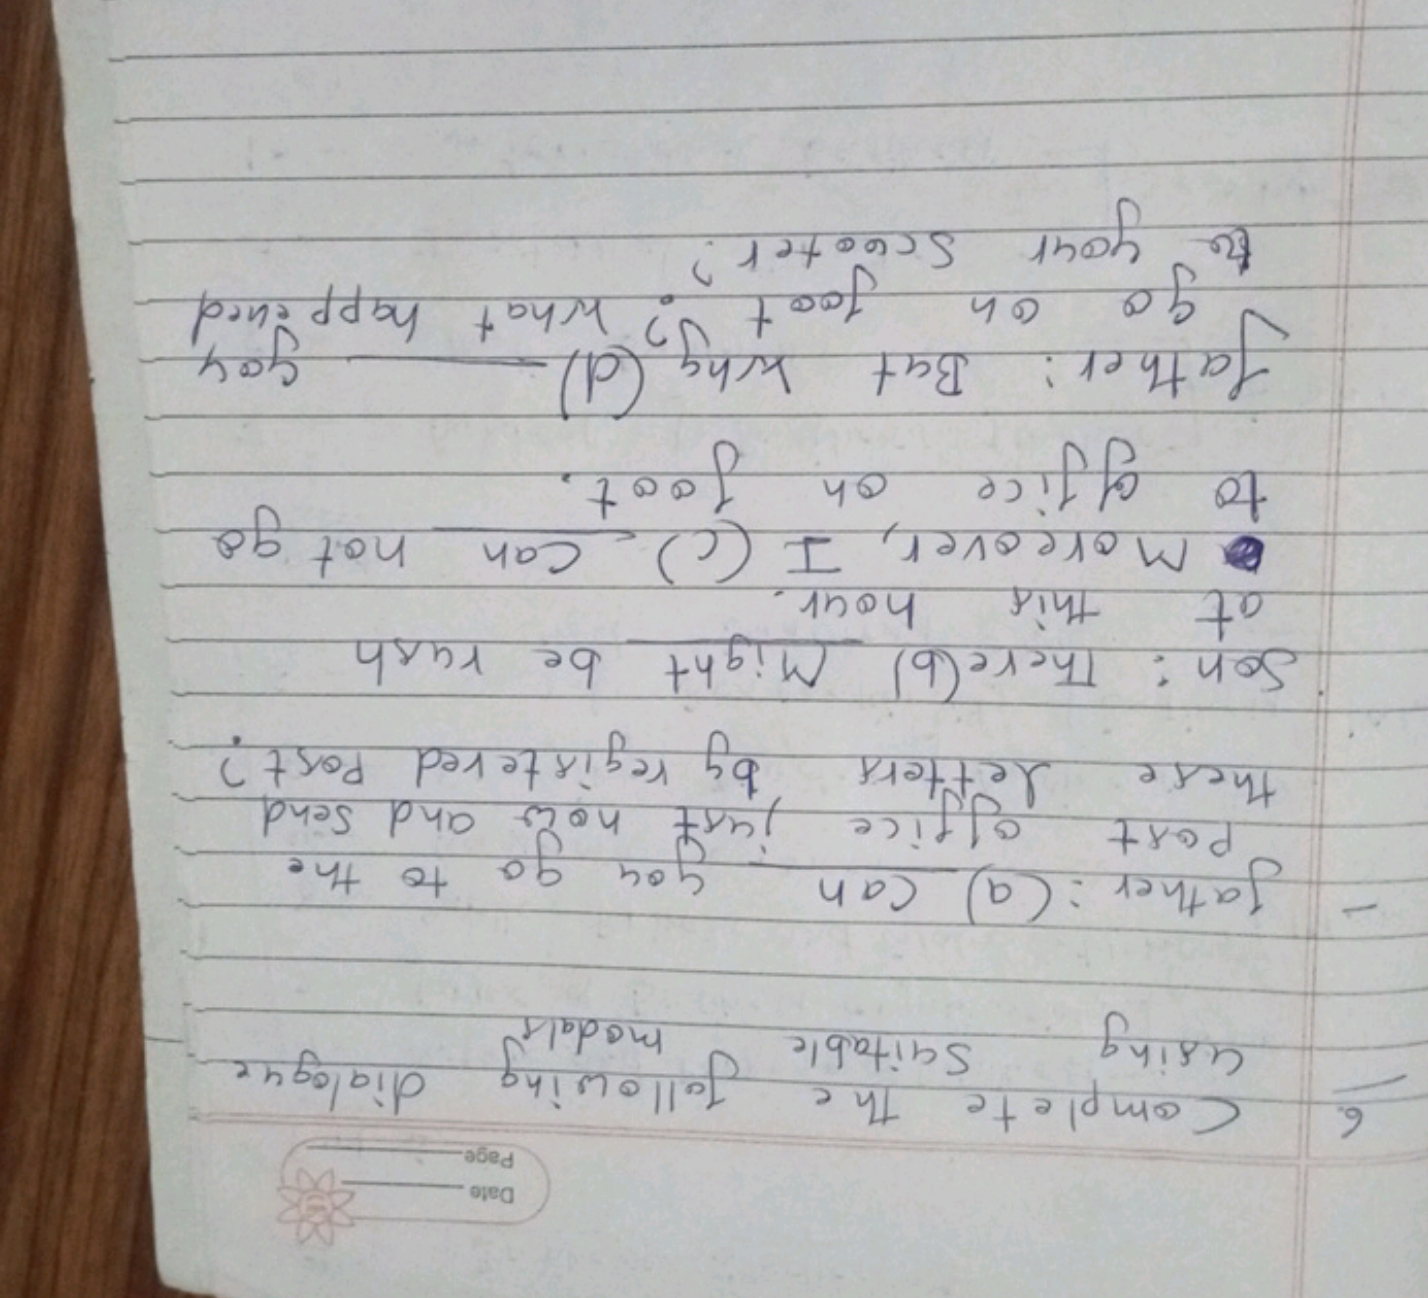 Date
Page
6 Complete the following dialogue
using suitable modals
1 Father: (a) can you go to the
post office just now and send
these letters by registered Post?
Son: There (b) Might be rush
at this hour.
Moreover, I (c) can not go
to office on foot.
Father: But why (d) ______ you
go on foot? What happened
to your Scooter?